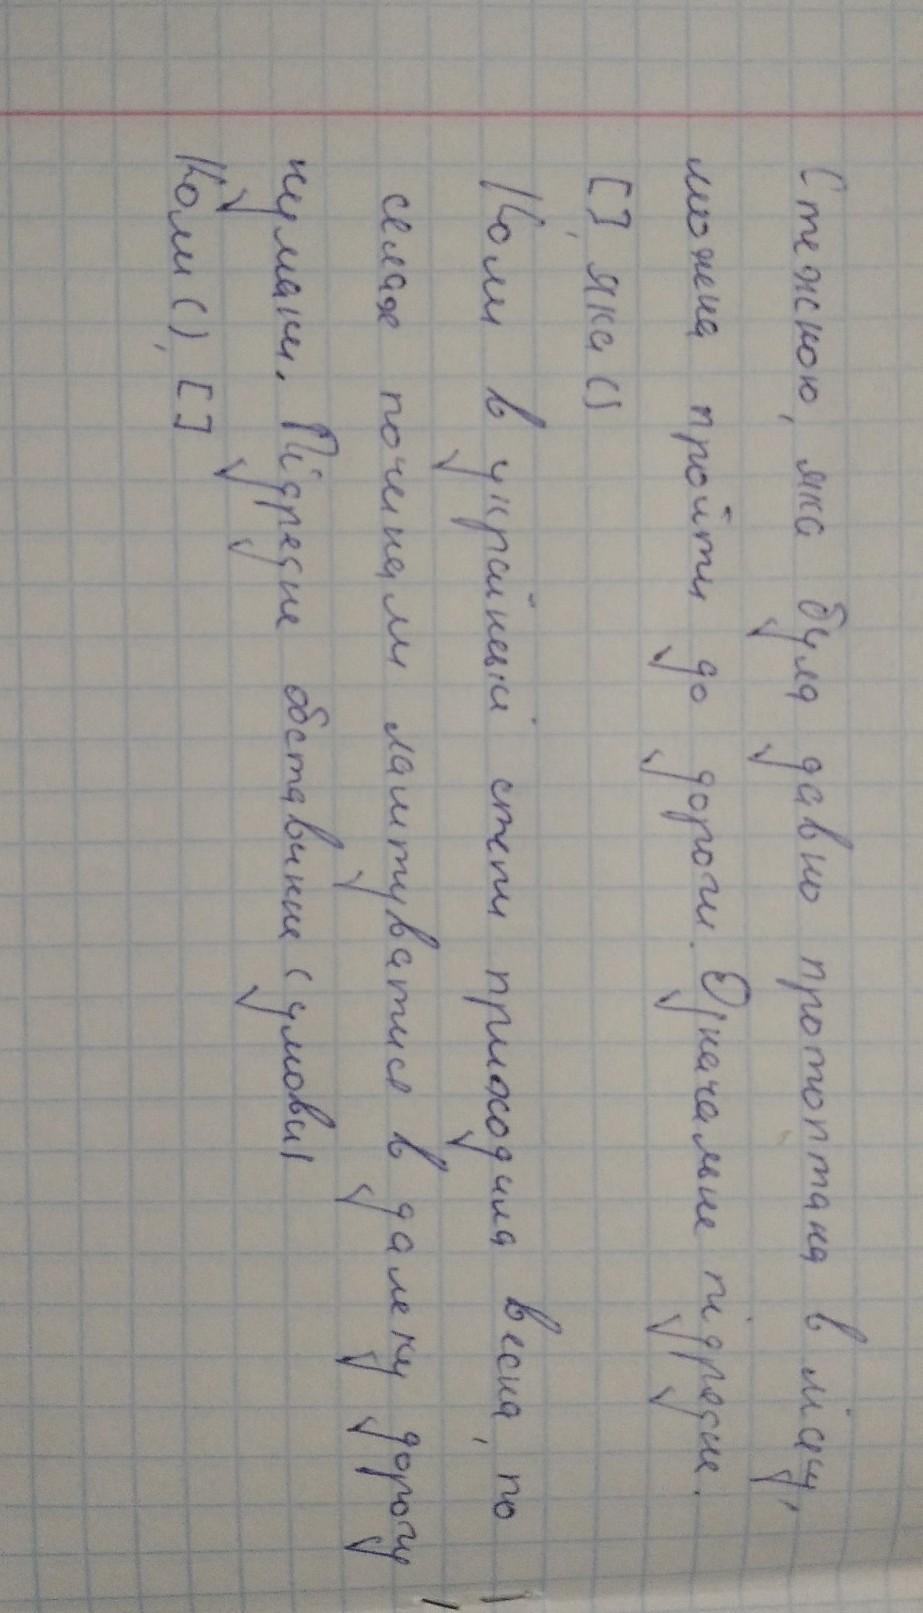 Стежкою, яка була давно протоптана в лісу,
можна пройти до дороги. Означальне підрядне.
[], яка ()
Коли в українські степи приходила весна, по
селах починали лаштуватись в далеку дорогу
чумаки. Підрядне обставинне (умови)
Коли (), []